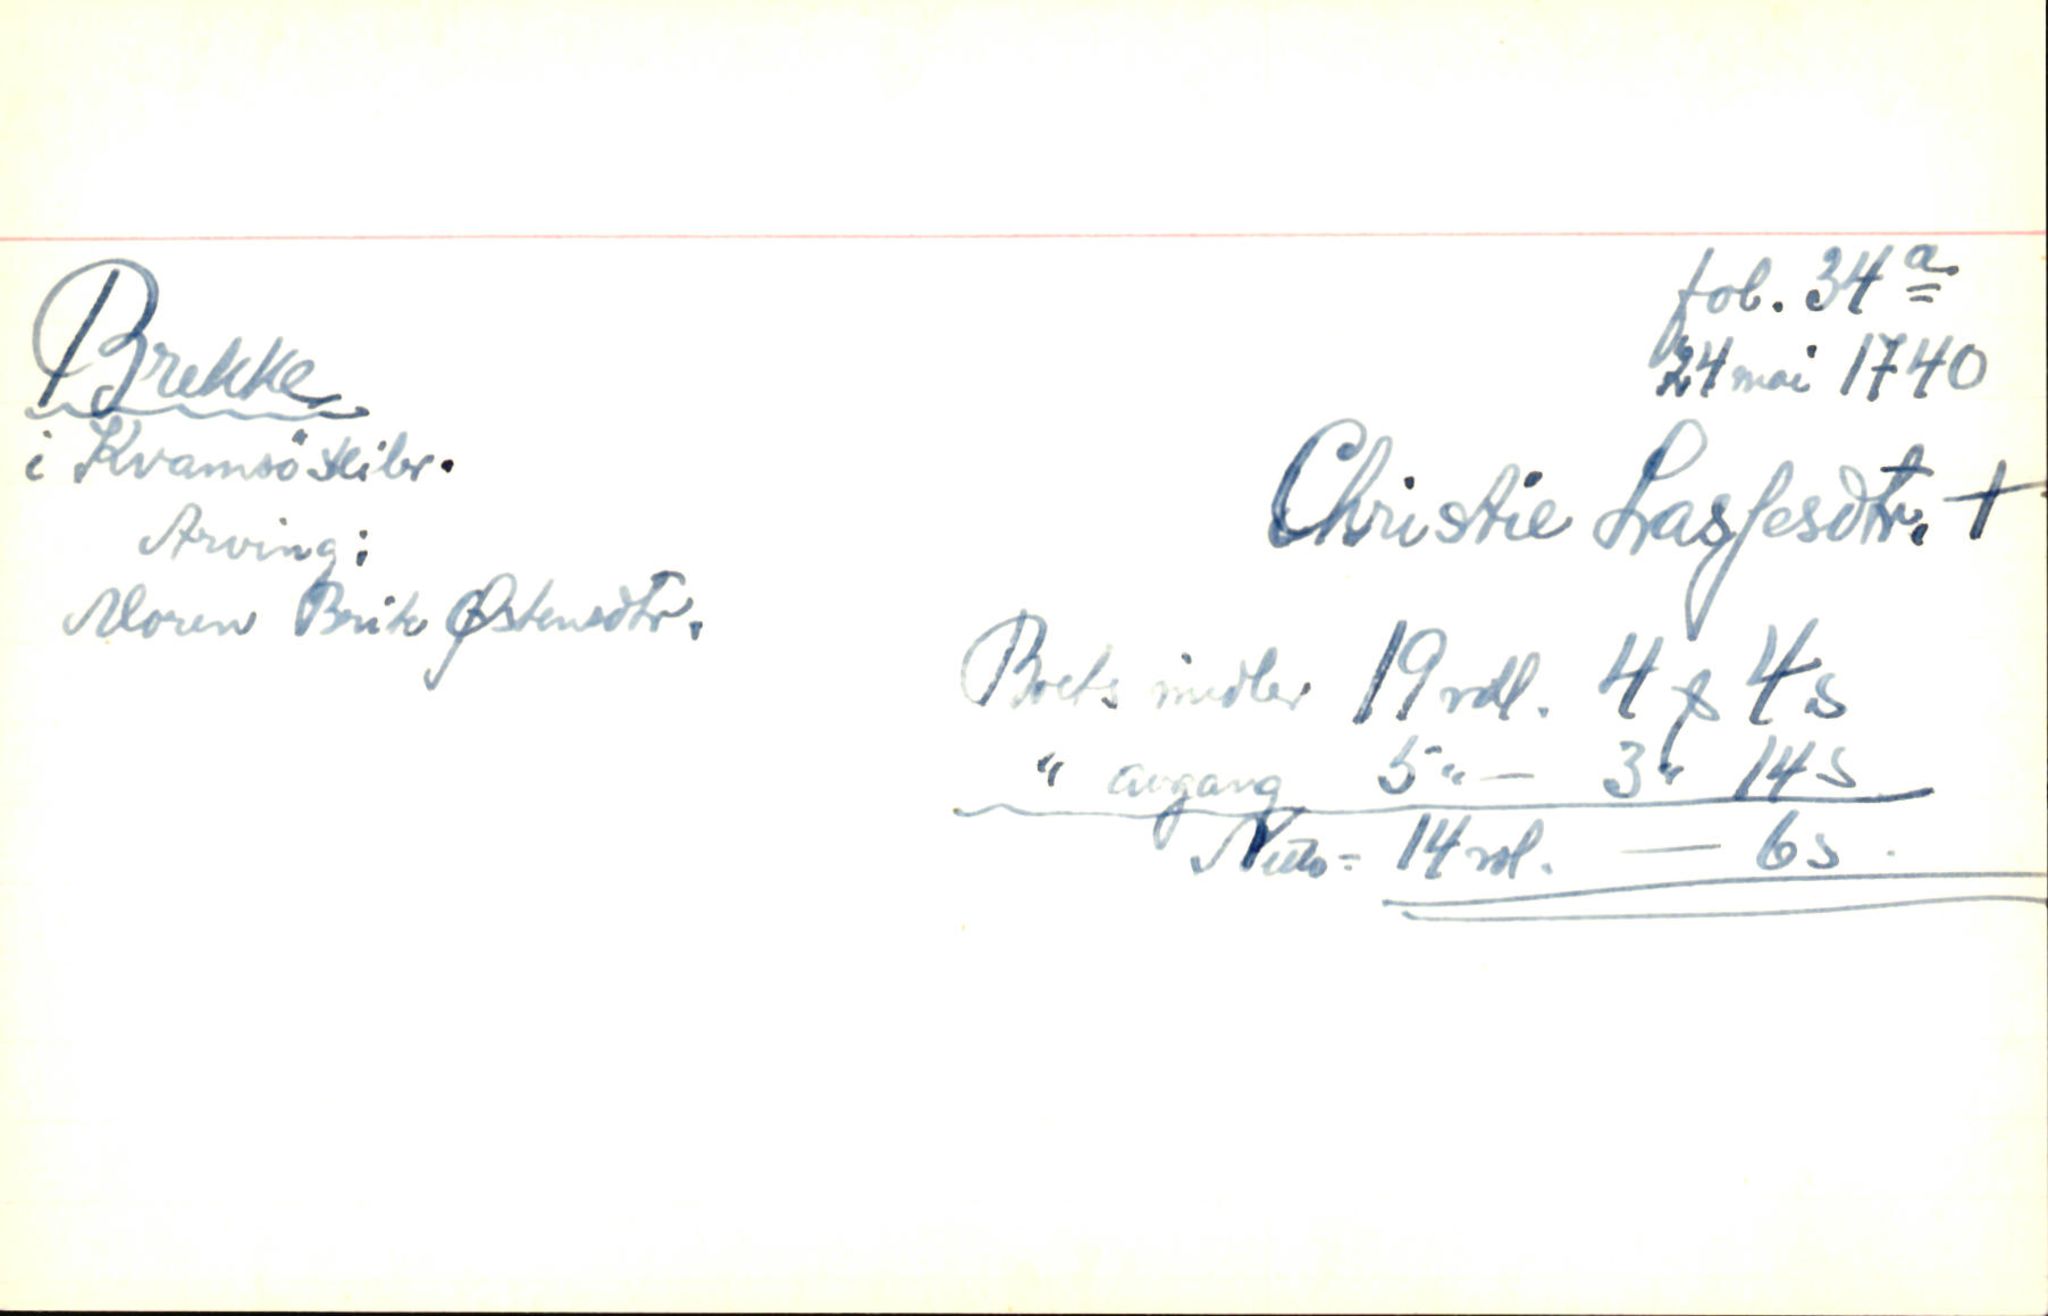 fol. 34 a
24 mai 1740
Brekke
i Kvamsö skibr.
Christie Lassesdtr. +
Arving:
Moren Brite Østensdtr.
Boets midler 19 rdl. 4 ß 4 s
" avgang 5 " — 3 " 14 s
Netto = 14 rdl. — 6 s.